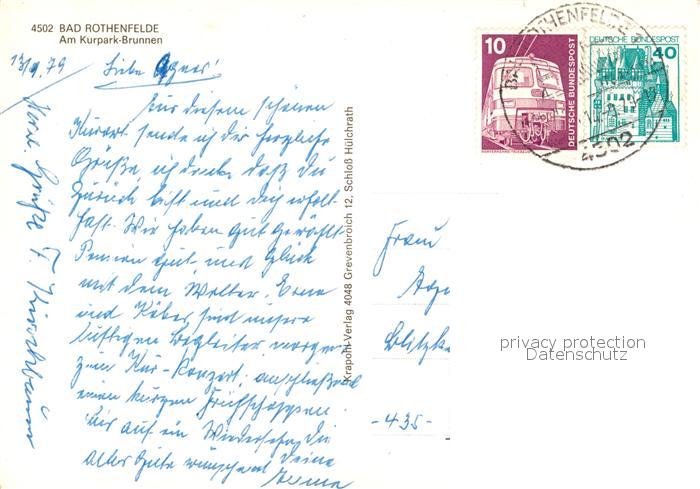 4502 BAD ROTHENFELDE
Am Kurpark-Brunnen
13/9.79
Liebe Agnes!
Aus diesem schönen
Kurort sende ich dir herzliche
Grüße, ich denke, daß du
zurück bist und dich erholt
hast. Wir haben gut gewählt
Pension gut, und Glück
mit dem Wetter. Erna
und Käthe sind unsere
lustigen Begleiter, morgen
zum Kur-Konzert, anschließend
einen kurzen Frühschoppen.
Bis auf ein Wiedersehn, die
alles Gute wünschend Deine
Anna
Herzl. Grüße F. Kirschbaum
Krapohl-Verlag 4048 Grevenbroich 12, Schloß Hülchrath
10
DEUTSCHE BUNDESPOST
DEUTSCHE BUNDESPOST
40
ROTHENFELDE
4502
Frau
Blitzk
-435-
privacy protection
Datenschutz